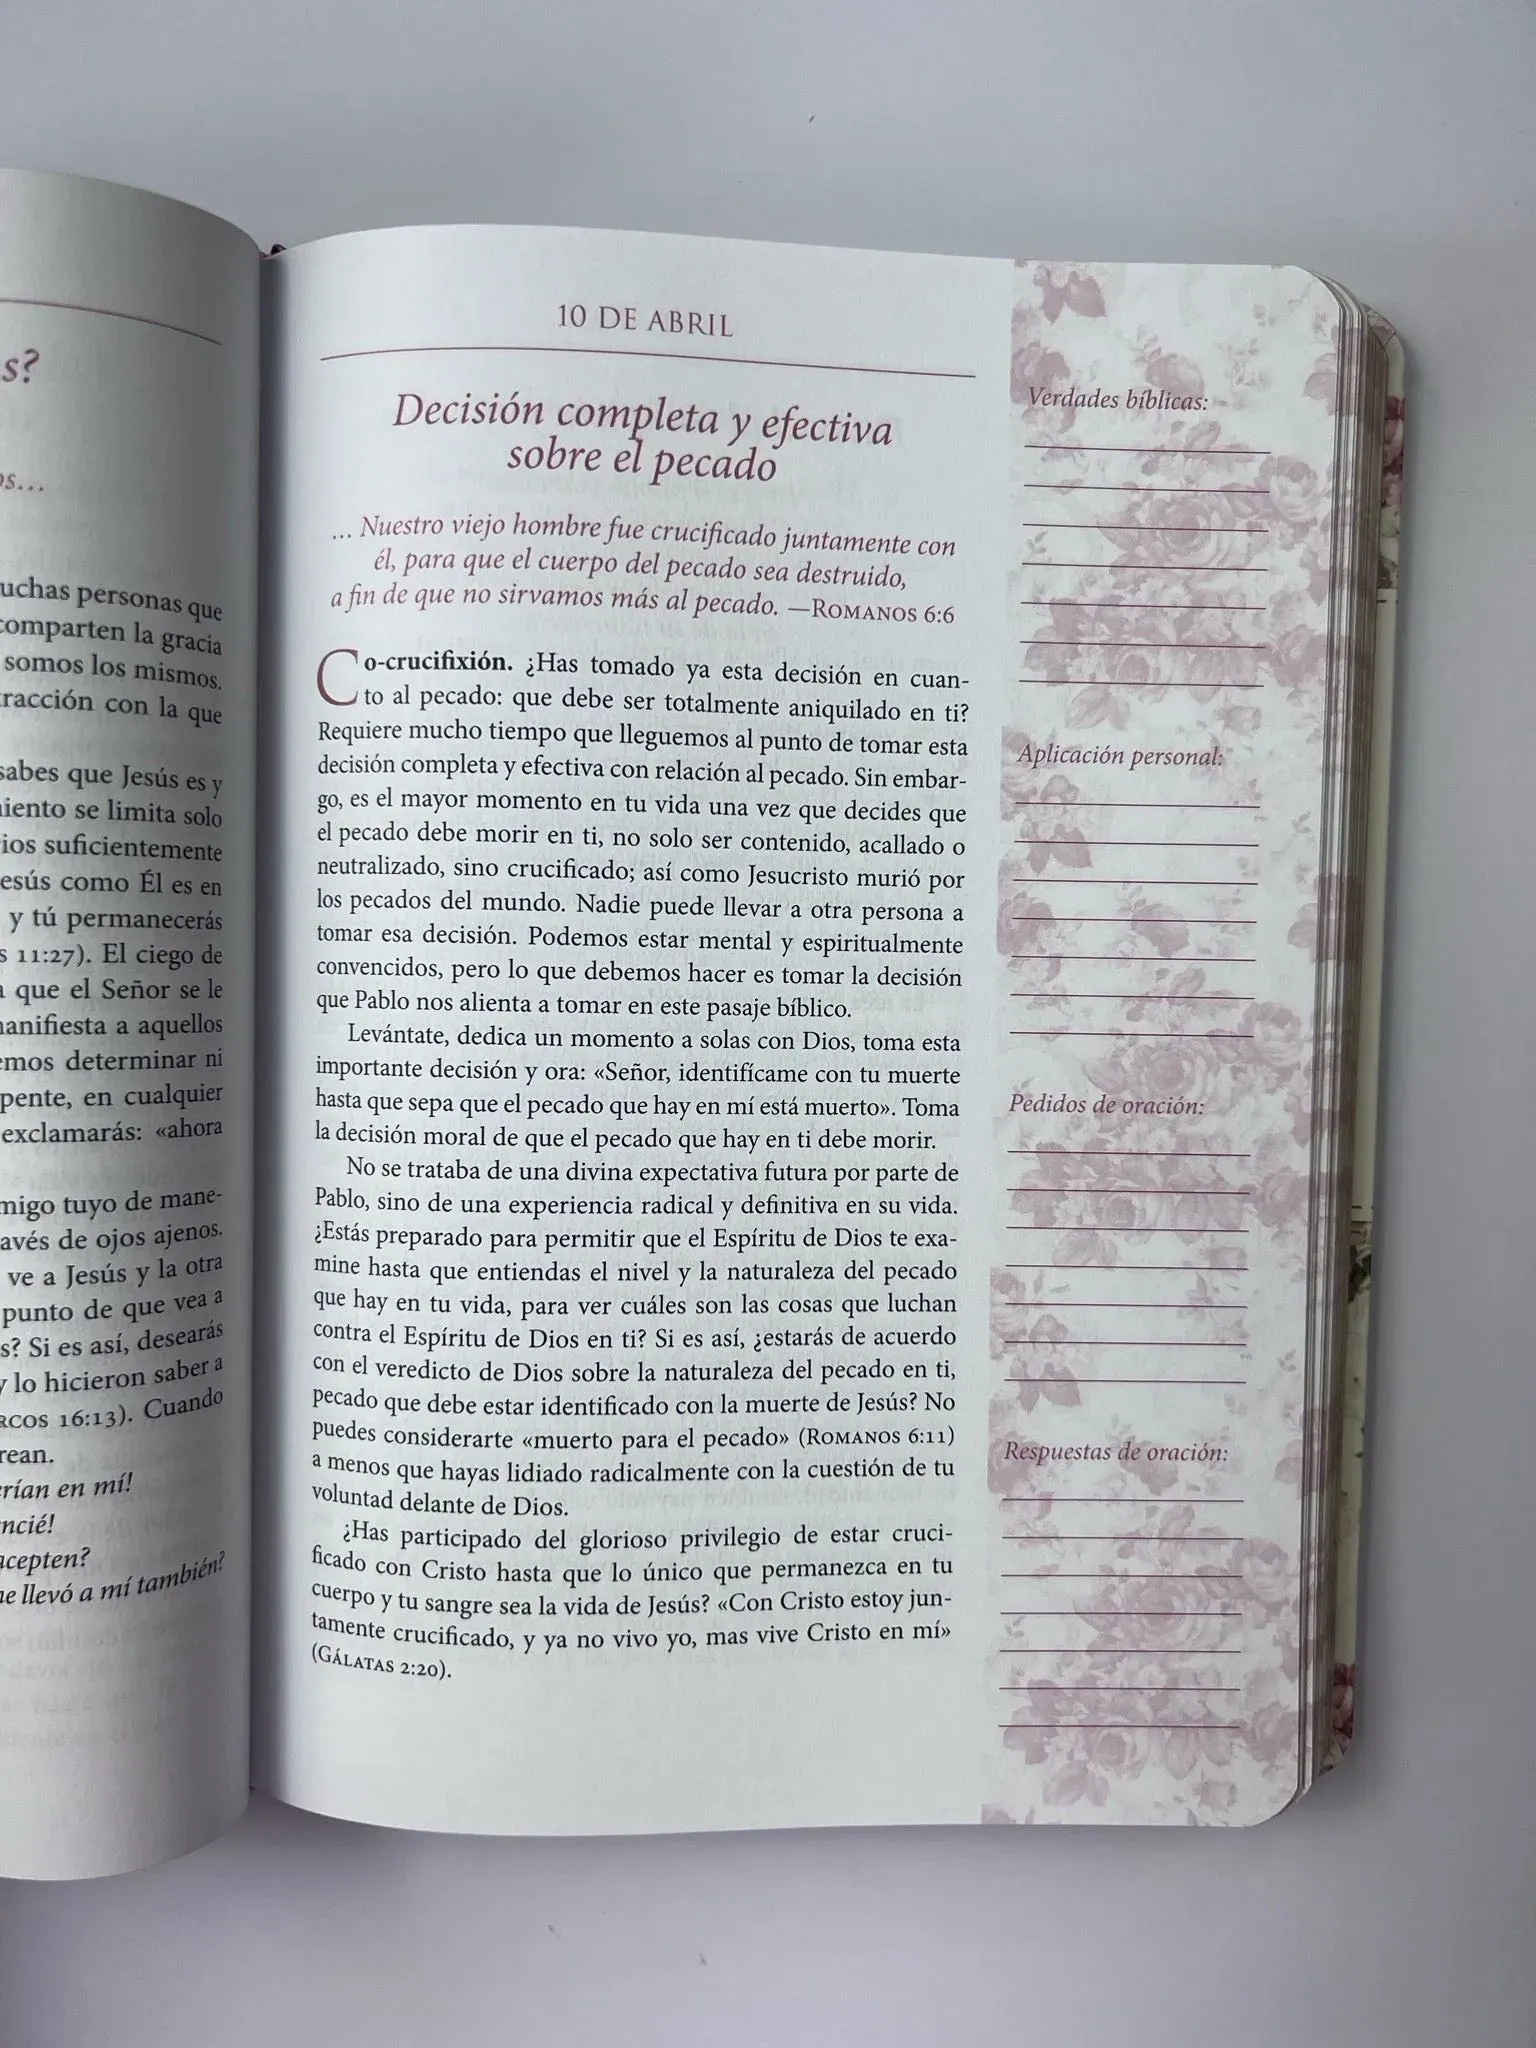 s?
os...
uchas personas que
comparten la gracia
somos los mismos.
racción con la que
sabes que Jesús es y
niento se limita solo
ios suficientemente
esús como Él es en
y tú permanecerás
s 11:27). El ciego de
a que el Señor se le
nanifiesta a aquellos
emos determinar ni
pente, en cualquier
exclamarás: «ahora
migo tuyo de mane-
avés de ojos ajenos.
ve a Jesús y la otra
punto de que vea a
s? Si es así, desearás
y lo hicieron saber a
RCOS 16:13). Cuando
rean.
erían en mí!
ncié!
acepten?
ne llevó a mí también?
10 DE ABRIL
Decisión completa y efectiva
sobre el pecado
... Nuestro viejo hombre fue crucificado juntamente con
él, para que el cuerpo del pecado sea destruido,
a fin de que no sirvamos más al pecado. —ROMANOS 6:6
Co-crucifixión. ¿Has tomado ya esta decisión en cuan-
to al pecado: que debe ser totalmente aniquilado en ti?
Requiere mucho tiempo que lleguemos al punto de tomar esta
decisión completa y efectiva con relación al pecado. Sin embar-
go, es el mayor momento en tu vida una vez que decides que
el pecado debe morir en ti, no solo ser contenido, acallado o
neutralizado, sino crucificado; así como Jesucristo murió por
los pecados del mundo. Nadie puede llevar a otra persona a
tomar esa decisión. Podemos estar mental y espiritualmente
convencidos, pero lo que debemos hacer es tomar la decisión
que Pablo nos alienta a tomar en este pasaje bíblico.
Levántate, dedica un momento a solas con Dios, toma esta
importante decisión y ora: «Señor, identifícame con tu muerte
hasta que sepa que el pecado que hay en mí está muerto». Toma
la decisión moral de que el pecado que hay en ti debe morir.
No se trataba de una divina expectativa futura por parte de
Pablo, sino de una experiencia radical y definitiva en su vida.
¿Estás preparado para permitir que el Espíritu de Dios te exa-
mine hasta que entiendas el nivel y la naturaleza del pecado
que hay en tu vida, para ver cuáles son las cosas que luchan
contra el Espíritu de Dios en ti? Si es así, ¿estarás de acuerdo
con el veredicto de Dios sobre la naturaleza del pecado en ti,
pecado que debe estar identificado con la muerte de Jesús? No
puedes considerarte «muerto para el pecado» (ROMANOS 6:11)
a menos que hayas lidiado radicalmente con la cuestión de tu
voluntad delante de Dios.
¿Has participado del glorioso privilegio de estar cruci-
ficado con Cristo hasta que lo único que permanezca en tu
cuerpo y tu sangre sea la vida de Jesús? «Con Cristo estoy jun-
tamente crucificado, y ya no vivo yo, mas vive Cristo en mí»
(GÁLATAS 2:20).
Verdades bíblicas:
Aplicación personal:
Pedidos de oración:
Respuestas de oración: